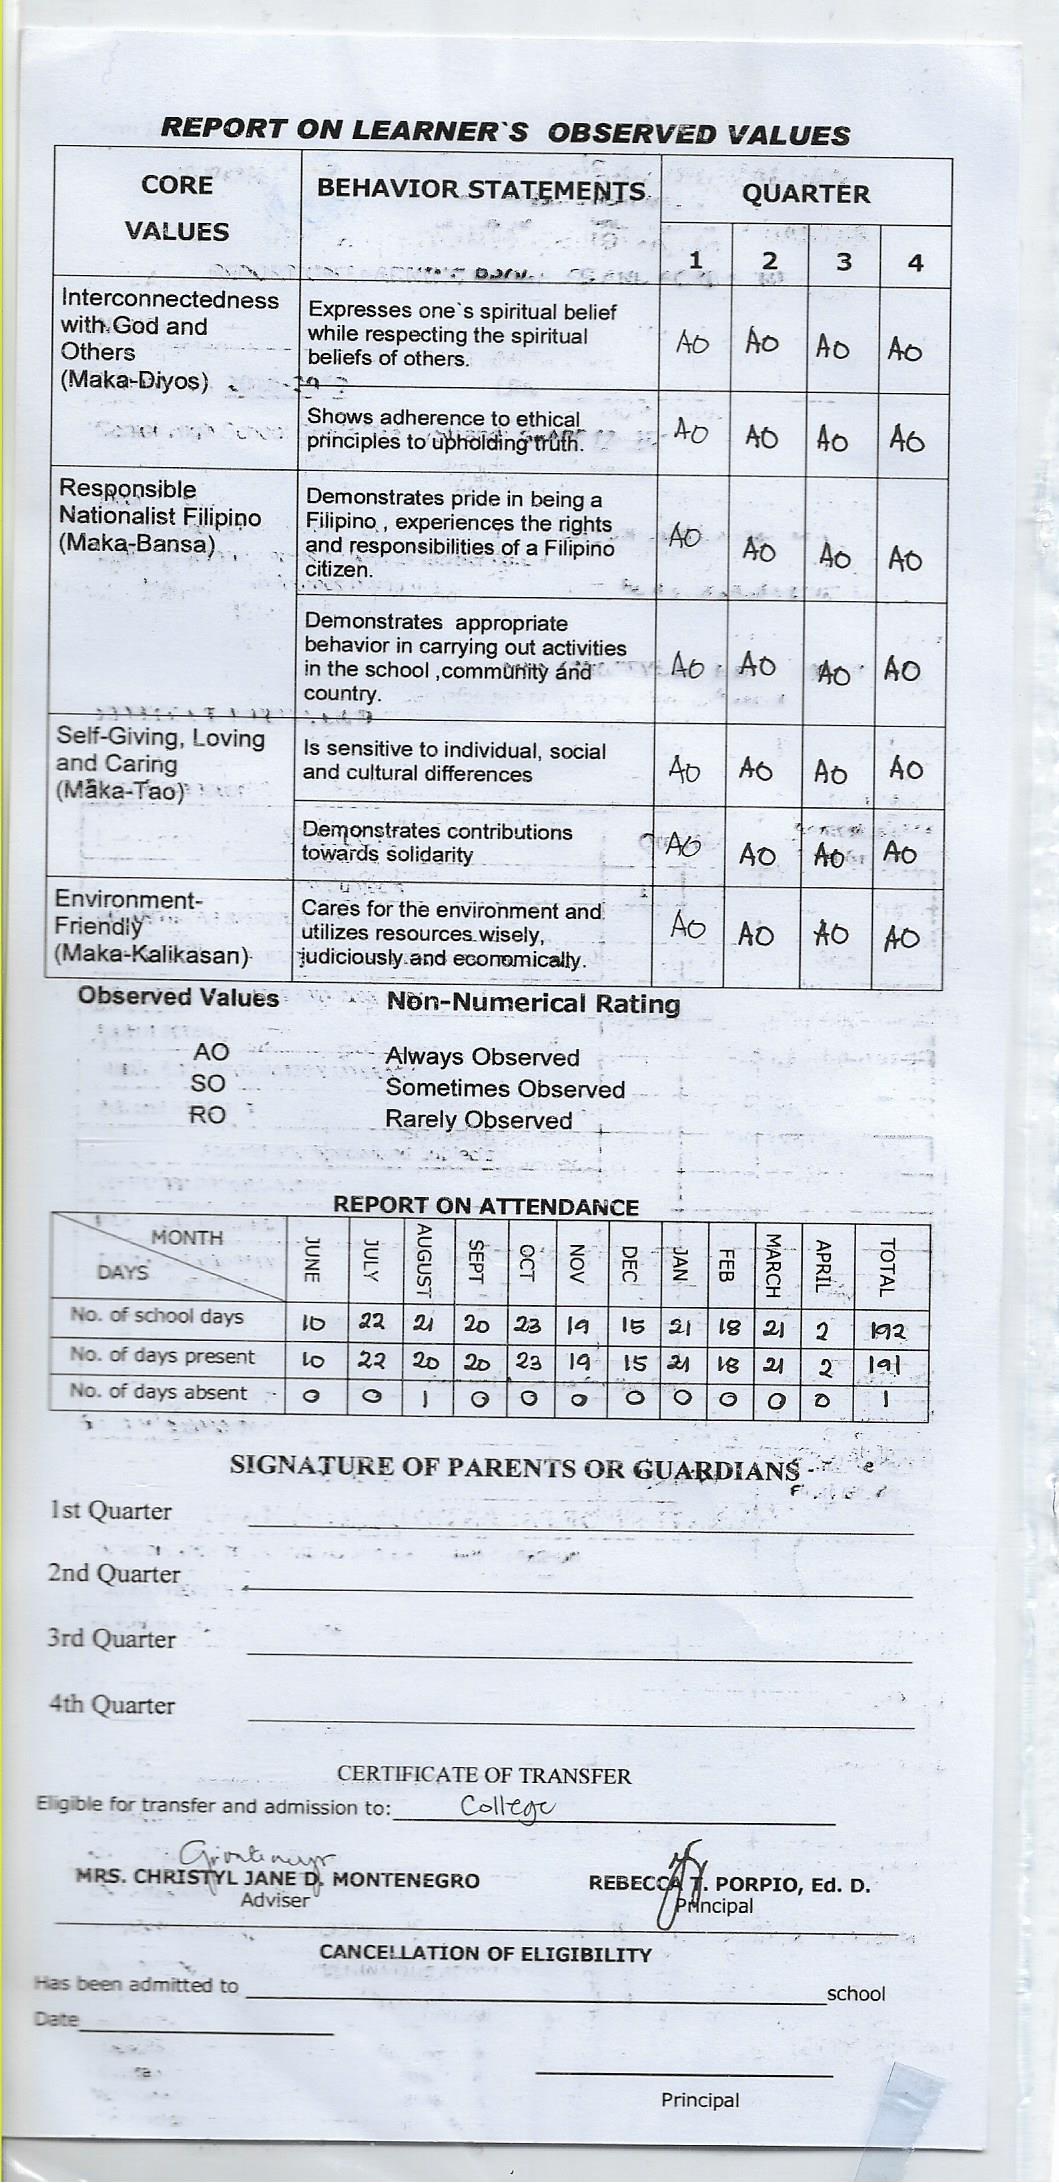 REPORT ON LEARNER`S OBSERVED VALUES
CORE VALUES BEHAVIOR STATEMENTS QUARTER
1 2 3 4
Interconnectedness
with God and
Others
(Maka-Diyos)
Expresses one`s spiritual belief
while respecting the spiritual
beliefs of others.
AO AO AO AO
Shows adherence to ethical
principles to upholding truth.
AO AO AO AO
Responsible
Nationalist Filipino
(Maka-Bansa)
Demonstrates pride in being a
Filipino , experiences the rights
and responsibilities of a Filipino
citizen.
AO AO AO AO
Demonstrates appropriate
behavior in carrying out activities
in the school ,community and
country.
AO AO AO AO
Self-Giving, Loving
and Caring
(Maka-Tao)
Is sensitive to individual, social
and cultural differences
AO AO AO AO
Demonstrates contributions
towards solidarity
AO AO AO AO
Environment-
Friendly
(Maka-Kalikasan)
Cares for the environment and
utilizes resources wisely,
judiciously and economically.
AO AO AO AO
Observed Values Non-Numerical Rating
AO Always Observed
SO Sometimes Observed
RO Rarely Observed
REPORT ON ATTENDANCE
MONTH
DAYS
JUNE JULY AUGUST SEPT OCT NOV DEC JAN FEB MARCH APRIL TOTAL
No. of school days 10 22 21 20 23 19 15 21 18 21 2 192
No. of days present 10 22 20 20 23 19 15 21 18 21 2 191
No. of days absent 0 0 1 0 0 0 0 0 0 0 0 1
SIGNATURE OF PARENTS OR GUARDIANS
1st Quarter
2nd Quarter
3rd Quarter
4th Quarter
CERTIFICATE OF TRANSFER
Eligible for transfer and admission to: College
MRS. CHRISTYL JANE D. MONTENEGRO REBECCA T. PORPIO, Ed. D.
Adviser Principal
CANCELLATION OF ELIGIBILITY
Has been admitted to school
Date
Principal